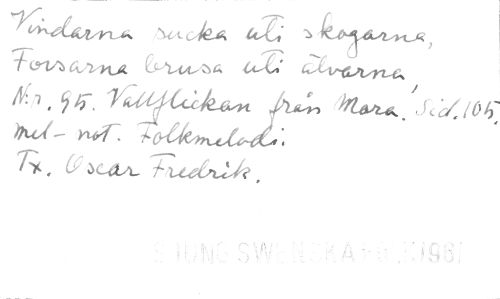 Vindarna sucka uti skogarna,
Forsarna brusa uti älvarna,
N:r. 95. Vallflickan från Mora. Sid. 105.
mel-not. Folkmelodi.
Tx. Oscar Fredrik.
SJUNG SVENSKA FOLK 1981